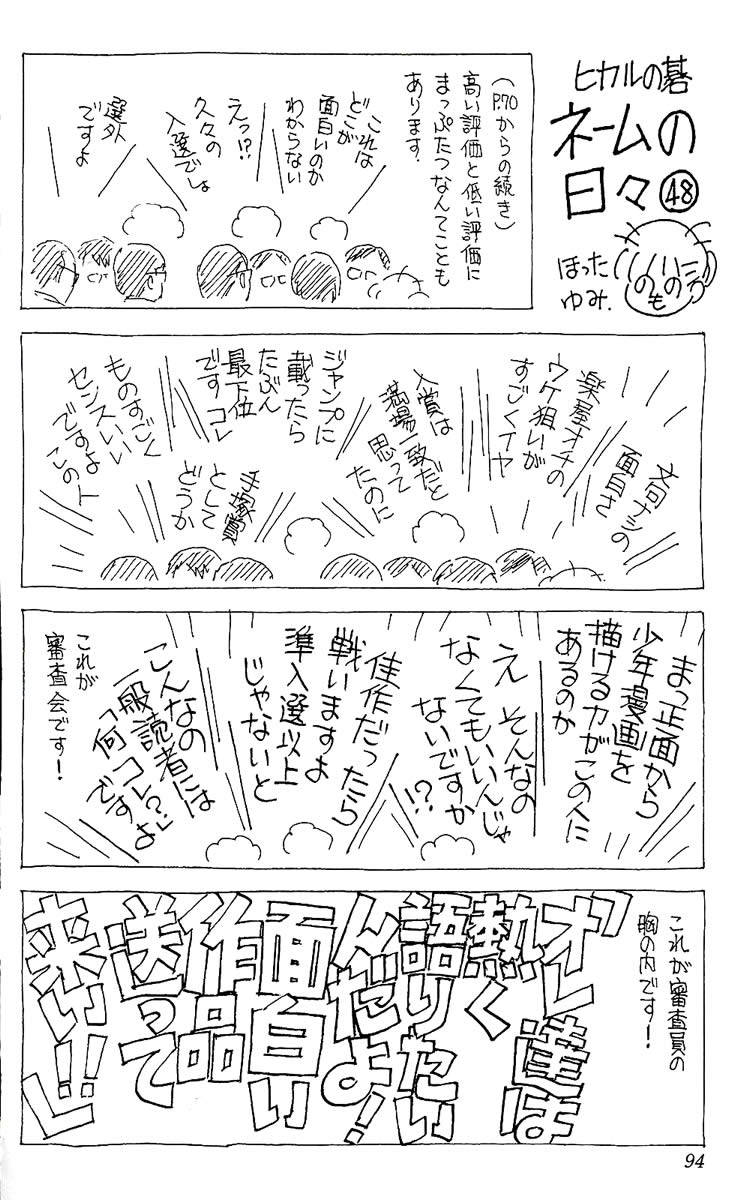 ヒカルの碁
ネームの
日々㊽
ほった
ゆみ.
(P.70からの続き)
高い評価と低い評価に
まっぷたつなんてことも
あります.
これは
どこが
面白いのか
わからない
えっ!?
久々の
入選でしょ
選外
ですよ
文句ナシの
面白さ
楽屋オチの
ウケ狙いが
すごくイヤ
入賞は
満場一致だと
思って
たのに
ジャンプに
載ったら
たぶん
最下位
ですコレ
手塚賞
として
どうか
ものすごく
センスいい
ですよ
この人
まっ正面から
少年漫画を
描ける力がこの人に
あるのか
え そんなの
なくてもいいんじゃ
ないですか
!?
佳作だったら
戦いますよ
準入選以上
じゃないと
こんなの
一般読者には
「何コレ?」
ですよ
これが
審査会です!
これが審査員の
胸の内です!
「オレ達は
熱く
語りたい
んだよ!
面白い
作品
送って
来い!!」
94